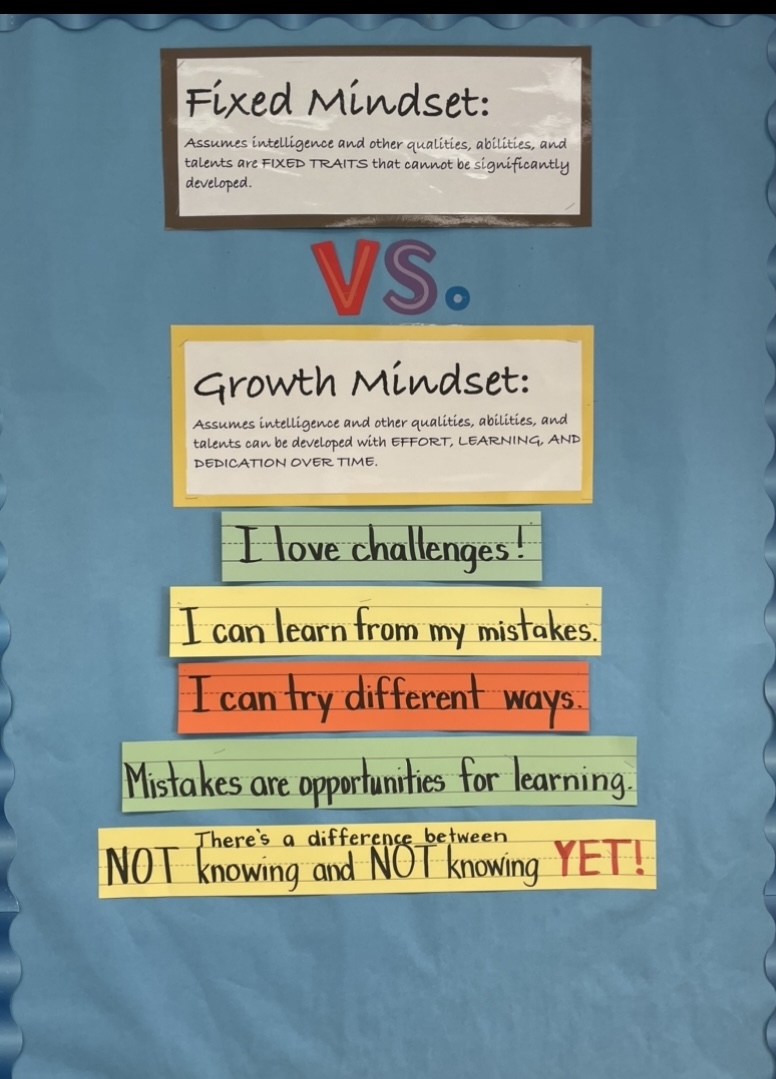 Fixed Mindset:
Assumes intelligence and other qualities, abilities, and
talents are FIXED TRAITS that cannot be significantly
developed.
VS.
Growth Mindset:
Assumes intelligence and other qualities, abilities, and
talents can be developed with EFFORT, LEARNING, AND
DEDICATION OVER TIME.
I love challenges!
I can learn from my mistakes.
I can try different ways.
Mistakes are opportunities for learning.
There's a difference between
NOT knowing and NOT knowing YET!